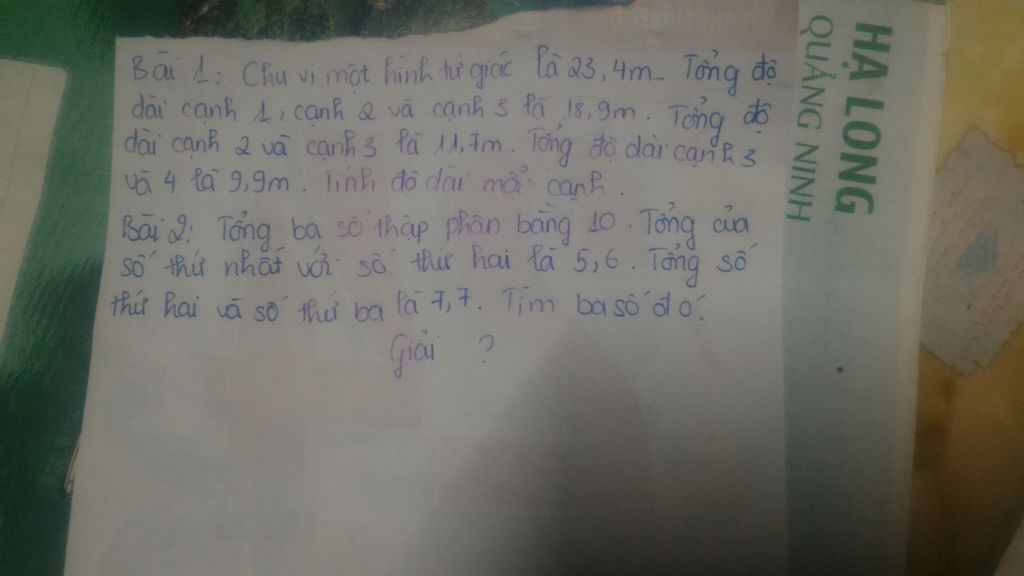 Bài 1: Chu vi một hình tứ giác là 23,4m. Tổng độ
dài cạnh 1, cạnh 2 và cạnh 3 là 18,9m. Tổng độ
dài cạnh 2 và cạnh 3 là 11,7m. Tổng độ dài cạnh 3
và 4 là 9,9m. Tính độ dài mỗi cạnh.
Bài 2: Tổng ba số thập phân bằng 10. Tổng của
số thứ nhất với số thứ hai là 5,6. Tổng số
thứ hai và số thứ ba là 7,7. Tìm ba số đó.
Giải ?
HẠ LONG
QUẢNG NINH